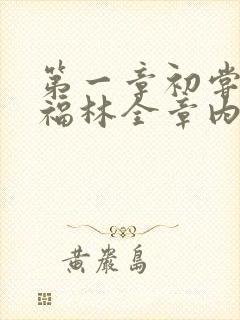 第一章初尝
福林全章内
黄岩岛